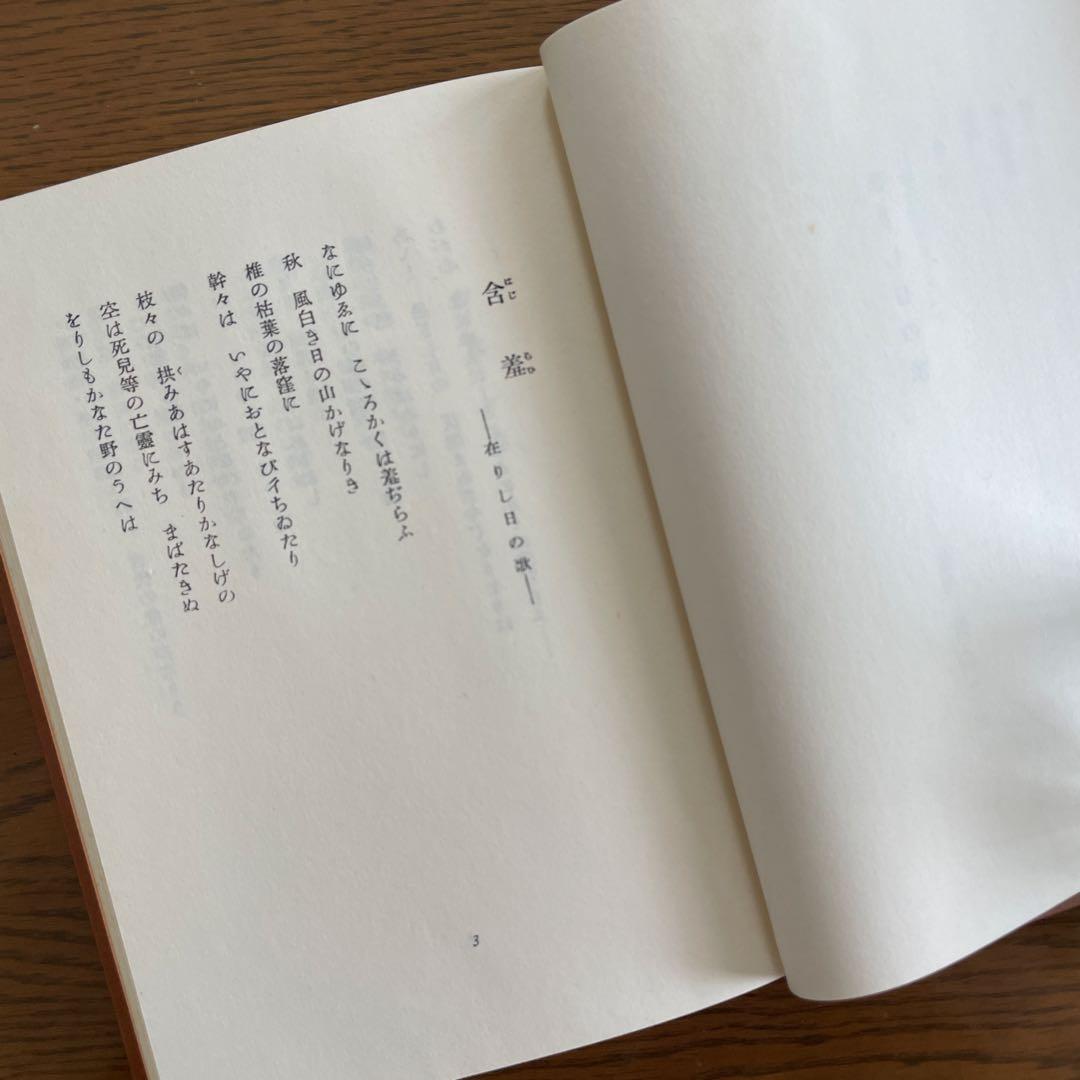 含羞
はぢ
らひ
——在りし日の歌——
なにゆゑに こゝろかくは羞ぢらふ
秋 風白き日の山かげなりき
椎の枯葉の落窪に
幹々は いやにおとなびイちゐたり
枝々の 拱みあはすあたりかなしげの
く
空は死兒等の亡靈にみち まばたきぬ
をりしもかなた野のうへは
3